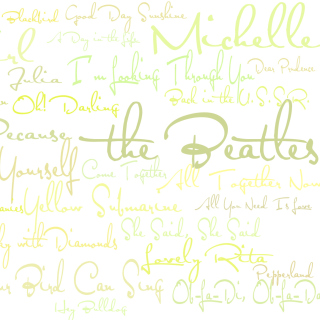 Blackbird Good Day Sunshine
A Day in the Life Michelle
Julia I'm Looking Through You Dear Prudence
Oh! Darling Back in the U.S.S.R.
Because the Beatles
Yourself Come Together All Together Now
Yellow Submarine All You Need Is Love
with Diamonds She Said, She Said
Lovely Rita
Bird Can Sing Pepperland
Ob-La-Di, Ob-La-Da
Hey Bulldog